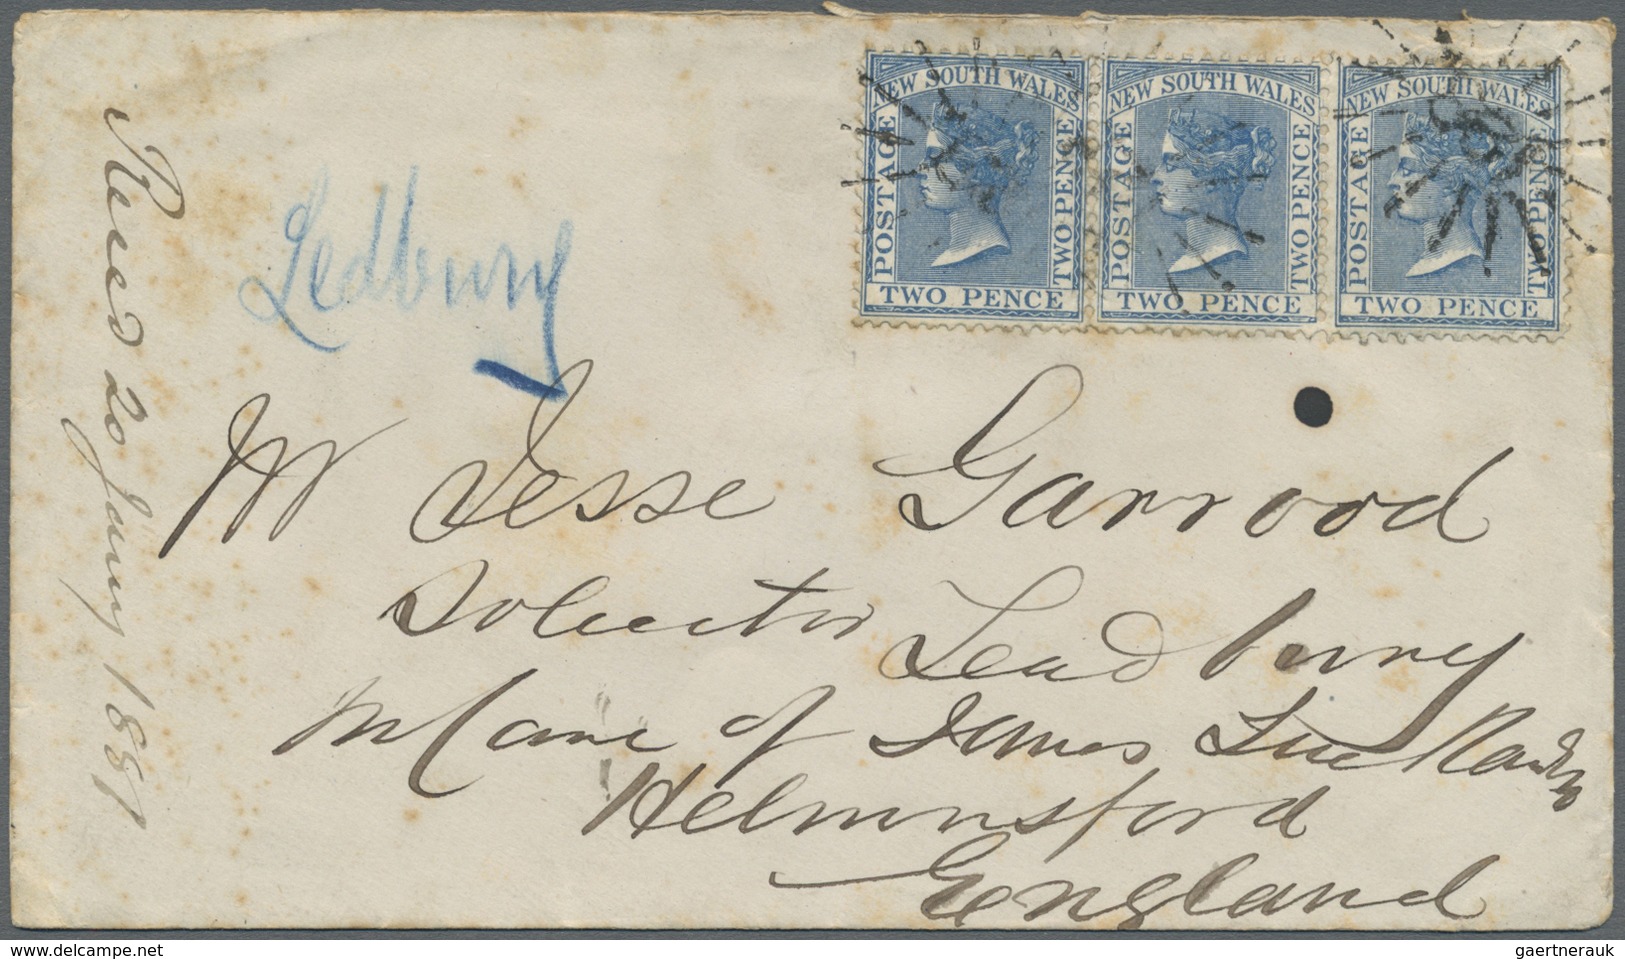 NEW SOUTH WALES POSTAGE TWO PENCE TWO PENCE
NEW SOUTH WALES POSTAGE TWO PENCE TWO PENCE
NEW SOUTH WALES POSTAGE TWO PENCE TWO PENCE
Ledbury
Mr Jesse Garrood
Solicitor Leadbury
In Care of James
Helmnsford
England
Recd 20 Jany 1887
gaertnerauk